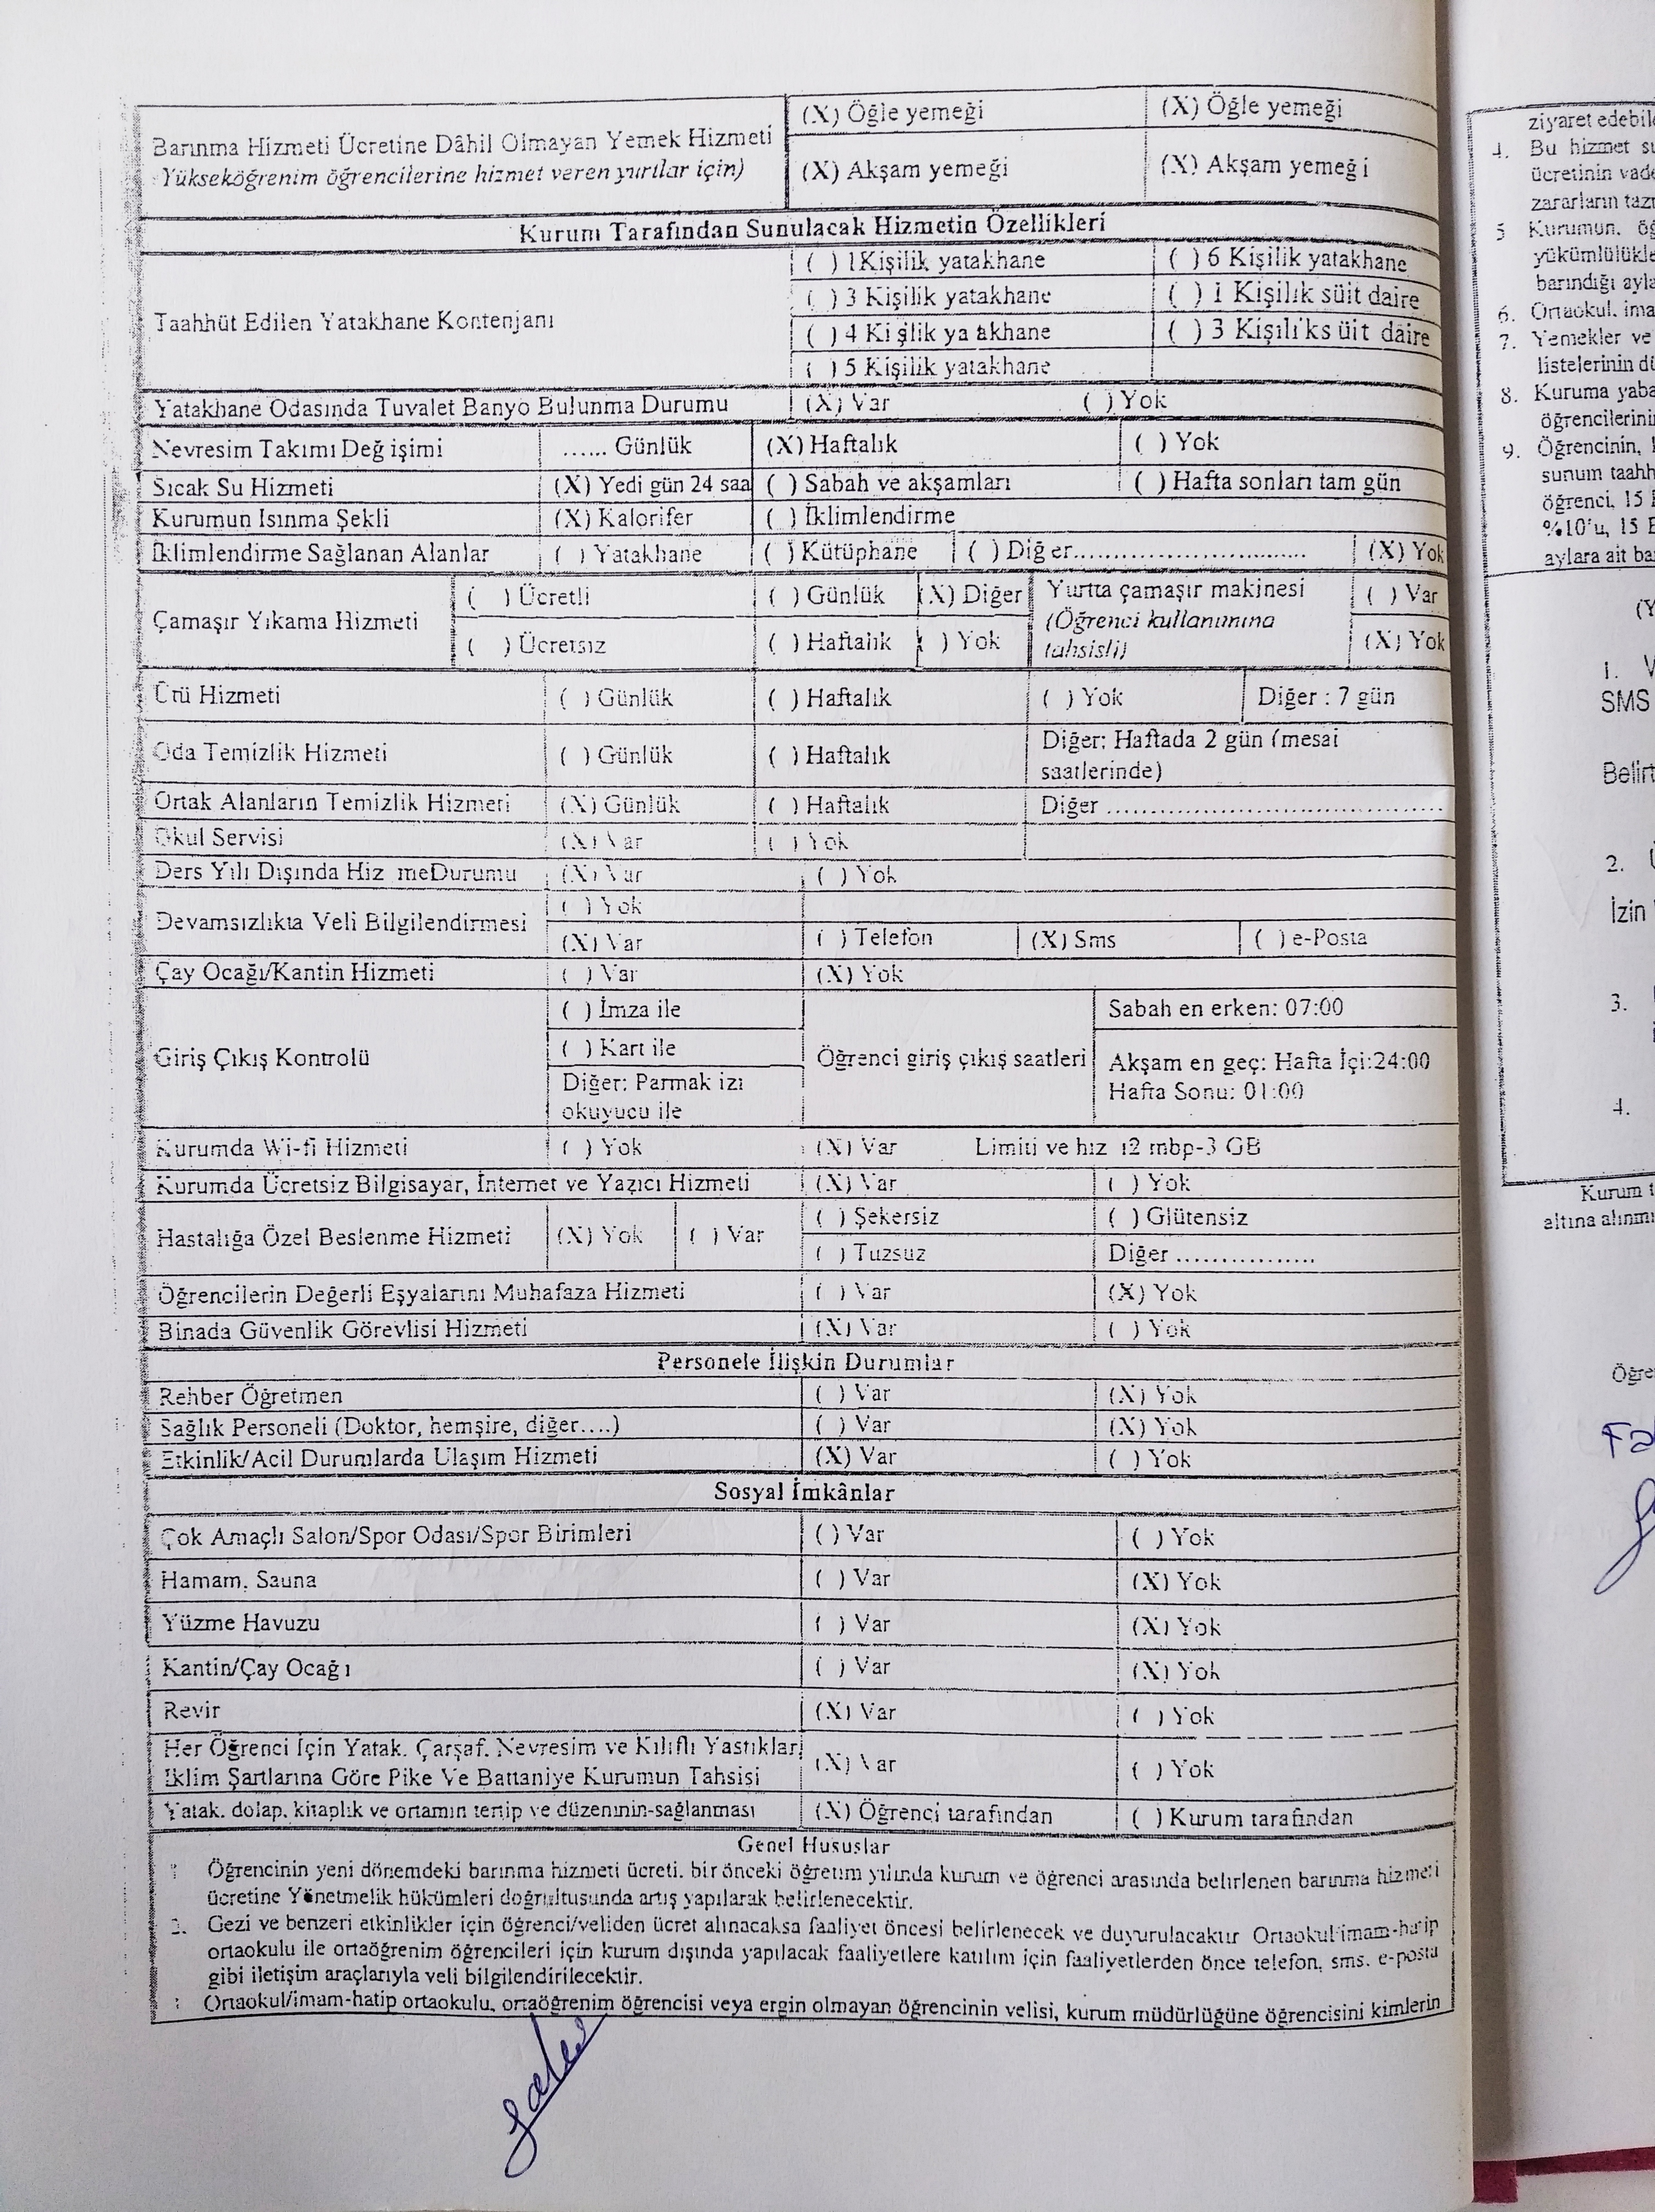 Barınma Hizmeti Ücretine Dâhil Olmayan Yemek Hizmeti
Yükseköğrenim öğrencilerine hizmet veren yurtlar için)
(X) Öğle yemeği (X) Öğle yemeği
(X) Akşam yemeği (X) Akşam yemeği
Kurum Tarafından Sunulacak Hizmetin Özellikleri
Taahhüt Edilen Yatakhane Kontenjanı
( ) 1Kişilik yatakhane ( ) 6 Kişilik yatakhane
( ) 3 Kişilik yatakhane ( ) 1 Kişilik süit daire
( ) 4 Kişilik ya akhane ( ) 3 Kişiliks üit daire
( ) 5 Kişilik yatakhane
Yatakhane Odasında Tuvalet Banyo Bulunma Durumu (X) Var ( ) Yok
Nevresim Takımı Değişimi ...... Günlük (X) Haftalık ( ) Yok
Sıcak Su Hizmeti (X) Yedi gün 24 saa ( ) Sabah ve akşamları ( ) Hafta sonları tam gün
Kurumun Isınma Şekli (X) Kalorifer ( ) İklimlendirme
İklimlendirme Sağlanan Alanlar ( ) Yatakhane ( ) Kütüphane ( ) Diğer............................. (X) Yok
Çamaşır Yıkama Hizmeti
( ) Ücretli ( ) Günlük (X) Diğer Yurtta çamaşır makinesi ( ) Var
(Öğrenci kullanımına
( ) Ücretsiz ( ) Haftalık ( ) Yok tahsisli) (X) Yok
Ütü Hizmeti ( ) Günlük ( ) Haftalık ( ) Yok Diğer : 7 gün
Oda Temizlik Hizmeti ( ) Günlük ( ) Haftalık Diğer: Haftada 2 gün (mesai
saatlerinde)
Ortak Alanların Temizlik Hizmeti (X) Günlük ( ) Haftalık Diğer .......................................
Okul Servisi (X) Var ( ) Yok
Ders Yılı Dışında Hiz meDurumu (X) Var ( ) Yok
Devamsızlıkta Veli Bilgilendirmesi
( ) Yok
(X) Var ( ) Telefon (X) Sms ( ) e-Posta
Çay Ocağı/Kantin Hizmeti ( ) Var (X) Yok
Giriş Çıkış Kontrolü
( ) İmza ile
( ) Kart ile
Diğer: Parmak izi
okuyucu ile
Öğrenci giriş çıkış saatleri
Sabah en erken: 07:00
Akşam en geç: Hafta İçi:24:00
Hafta Sonu: 01:00
Kurumda Wi-fi Hizmeti ( ) Yok (X) Var Limiti ve hız 12 mbp-3 GB
Kurumda Ücretsiz Bilgisayar, İnternet ve Yazıcı Hizmeti (X) Var ( ) Yok
Hastalığa Özel Beslenme Hizmeti (X) Yok ( ) Var
( ) Şekersiz ( ) Glütensiz
( ) Tuzsuz Diğer ................
Öğrencilerin Değerli Eşyalarını Muhafaza Hizmeti ( ) Var (X) Yok
Binada Güvenlik Görevlisi Hizmeti (X) Var ( ) Yok
Personele İlişkin Durumlar
Rehber Öğretmen ( ) Var (X) Yok
Sağlık Personeli (Doktor, hemşire, diğer....) ( ) Var (X) Yok
Etkinlik/Acil Durumlarda Ulaşım Hizmeti (X) Var ( ) Yok
Sosyal İmkânlar
Çok Amaçlı Salon/Spor Odası/Spor Birimleri ( ) Var ( ) Yok
Hamam, Sauna ( ) Var (X) Yok
Yüzme Havuzu ( ) Var (X) Yok
Kantin/Çay Ocağı ( ) Var (X) Yok
Revir (X) Var ( ) Yok
Her Öğrenci İçin Yatak, Çarşaf, Nevresim ve Kılıflı Yastıklar
İklim Şartlarına Göre Pike Ve Battaniye Kurumun Tahsisi (X) Var ( ) Yok
Yatak, dolap, kitaplık ve ortamın tertip ve düzeninin-sağlanması (X) Öğrenci tarafından ( ) Kurum tarafından
Genel Hususlar
Öğrencinin yeni dönemdeki barınma hizmeti ücreti, bir önceki öğretim yılında kurum ve öğrenci arasında belirlenen barınma hizmeti
ücretine Yönetmelik hükümleri doğrultusunda artış yapılarak belirlenecektir.
2. Gezi ve benzeri etkinlikler için öğrenci/veliden ücret alınacaksa faaliyet öncesi belirlenecek ve duyurulacaktır Ortaokul/imam-hatip
ortaokulu ile ortaöğrenim öğrencileri için kurum dışında yapılacak faaliyetlere katılım için faaliyetlerden önce telefon, sms, e-posta
gibi iletişim araçlarıyla veli bilgilendirilecektir.
Ortaokul/imam-hatip ortaokulu, ortaöğrenim öğrencisi veya ergin olmayan öğrencinin velisi, kurum müdürlüğüne öğrencisini kimlerin
ziyaret edebile
4. Bu hizmet su
ücretinin vade
zararların tazm
5 Kurumun, öğ
yükümlülükle
barındığı ayla
6. Ortaokul, ima
7. Yemekler ve
listelerinin dü
8. Kuruma yaba
öğrencilerinin
9. Öğrencinin,
sunum taahh
öğrenci, 15
%10'u, 15 E
aylara ait ba
(Y
1. V
SMS
Belirt
2.
İzin
3.
4.
Kurum t
altına alınmı
Öğre